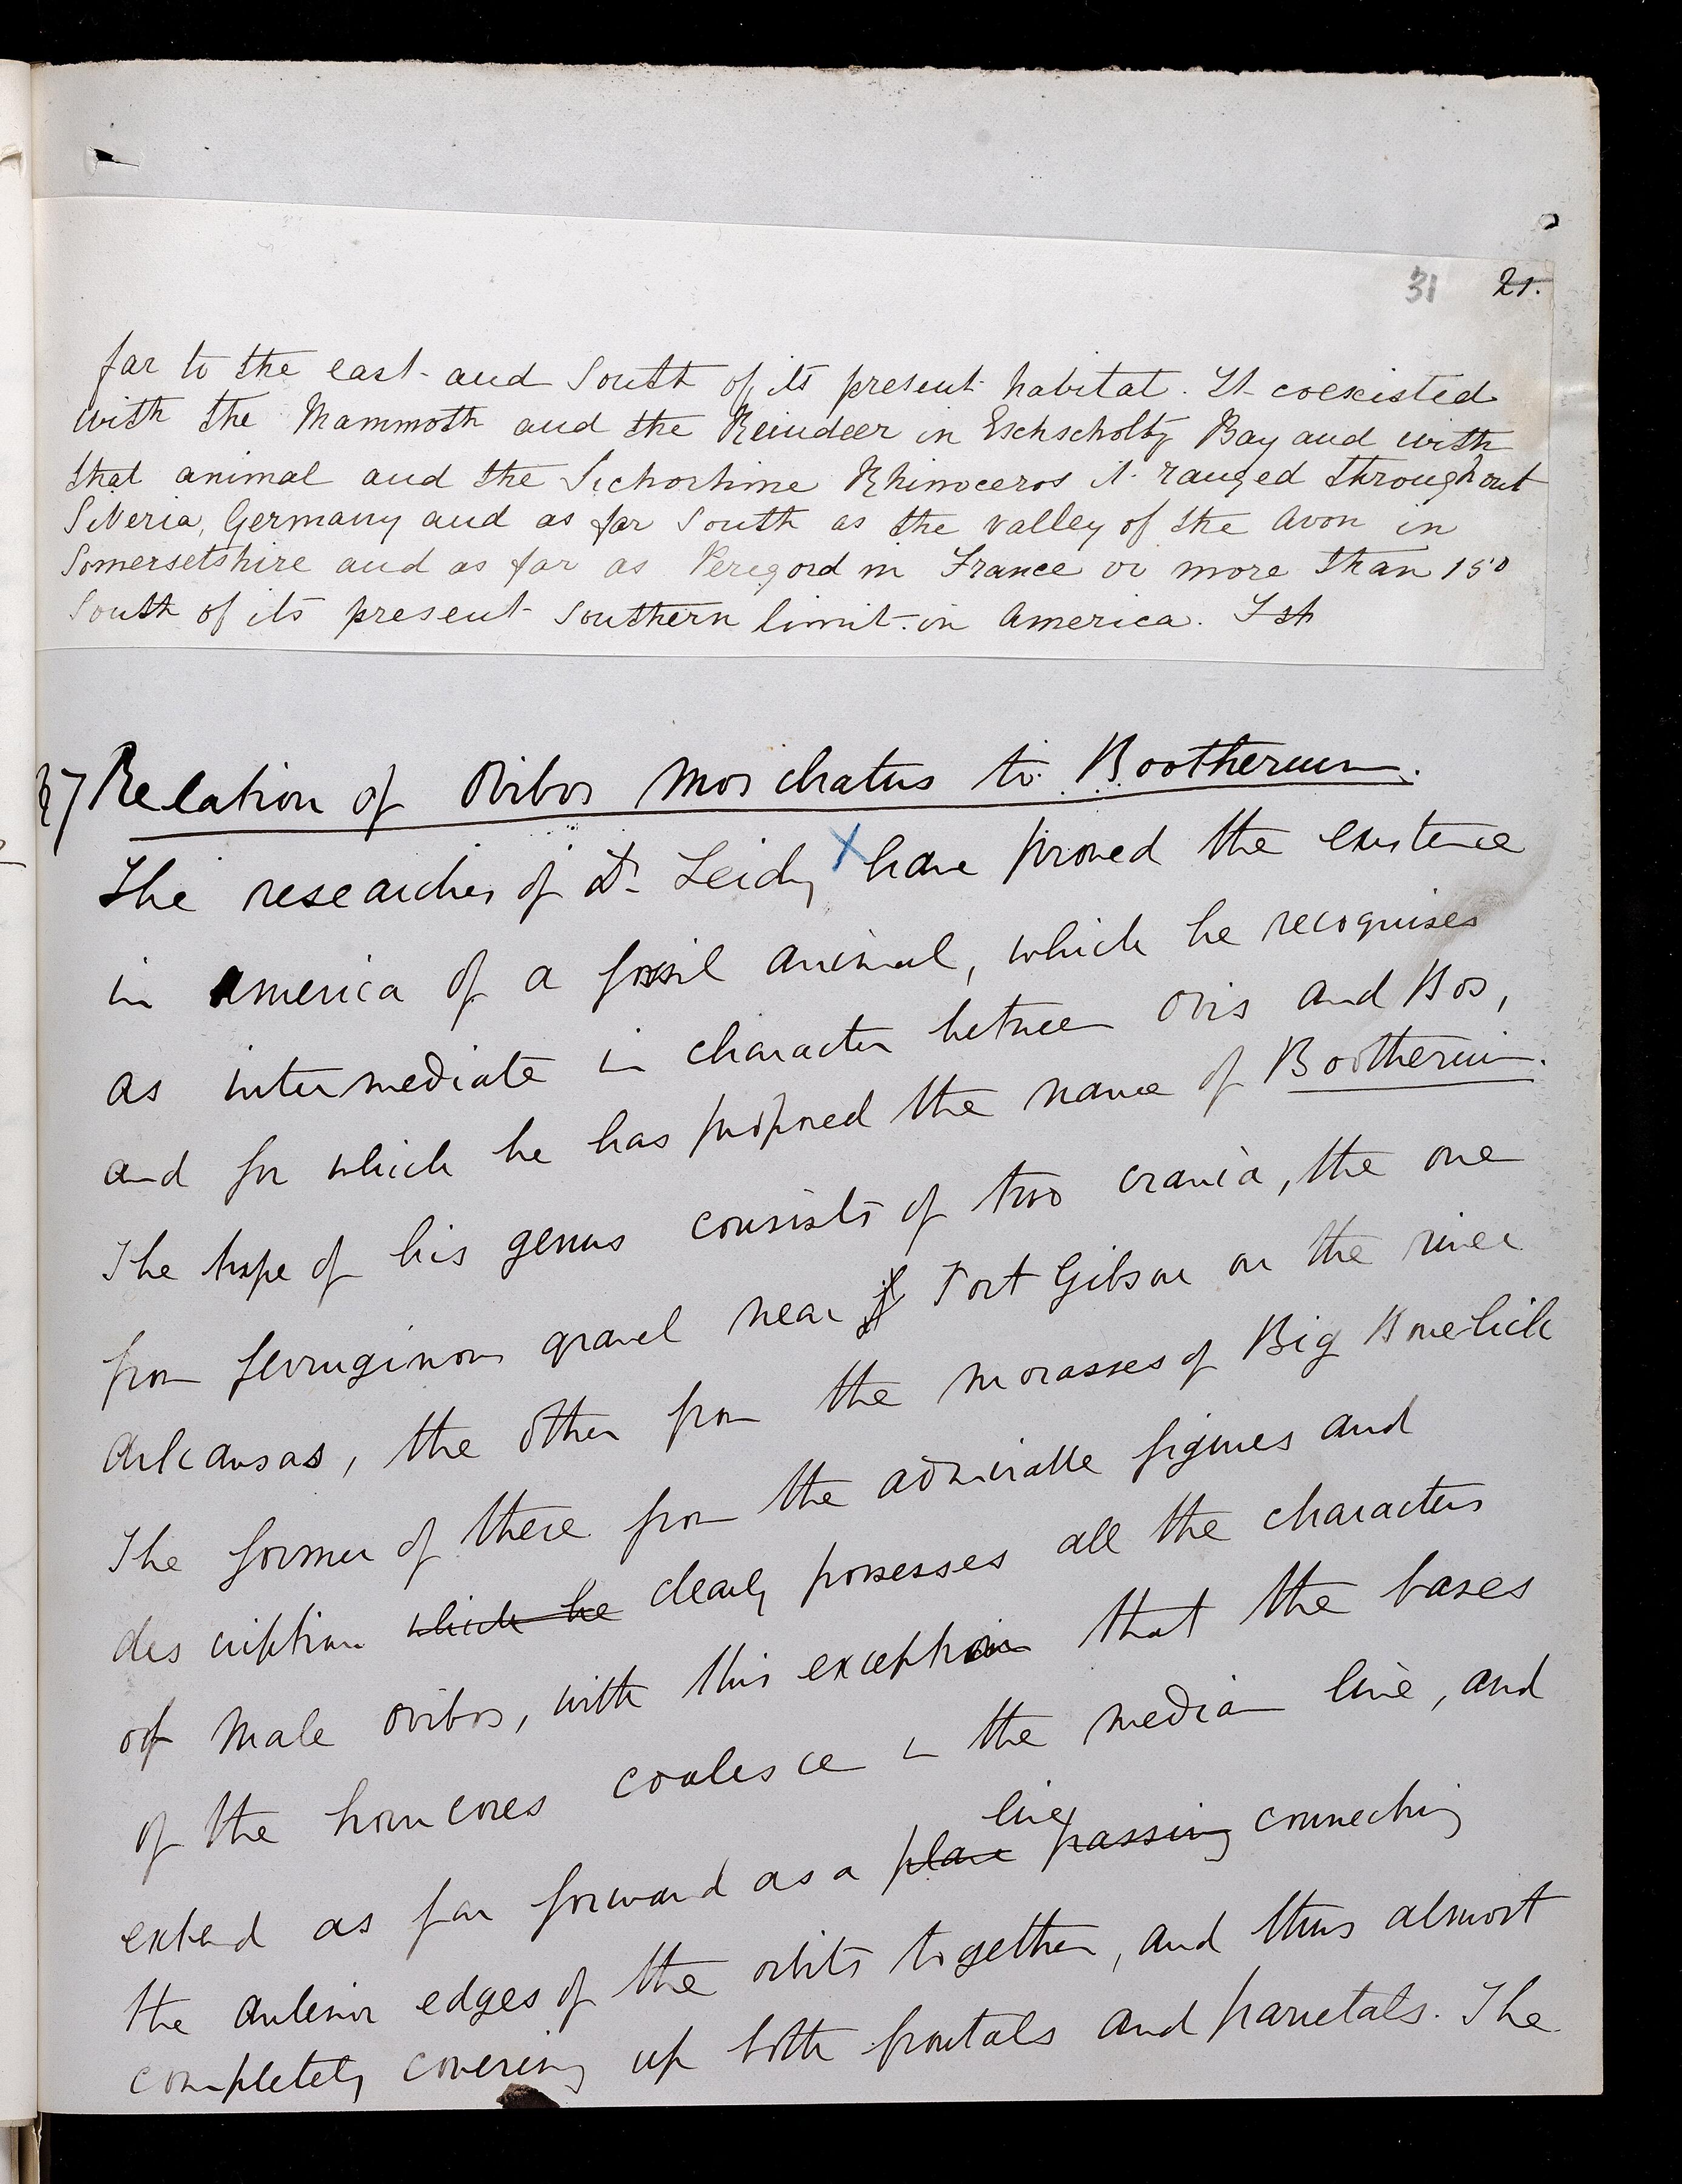 31 21.
far to the east and South of its present habitat. It coexisted
with the Mammoth and the Reindeer in Eschscholtz Bay and with
that animal and the Tichorhine Rhinoceros it ranged throughout
Siberia, Germany and as far South as the valley of the Avon in
Somersetshire and as far as Perigord in France or more than 15°
South of its present Southern limit in America. Ist
§7 Relation of Ovibos moschatus to Bootherium.
The researches of Dr Leidy X have proved the existence
in America of a fossil animal, which he recognises
as intermediate in character between Ovis and Bos,
and for which he has proposed the name of Bootherium.
The type of his genus consists of two crania, the one
from ferruginous gravel near Fort Gibson on the river
Arkansas, the other from the morasses of Big Bone-lick
The former of these from the admirable figures and
description which he clearly possesses all the characters
of male Ovibos, with this exception that the bases
of the horncores coalesce in the median line, and
line
extend as far forward as a plane passing connecting
the anterior edges of the orbits together, and thus almost
completely covering up both frontals and parietals. The